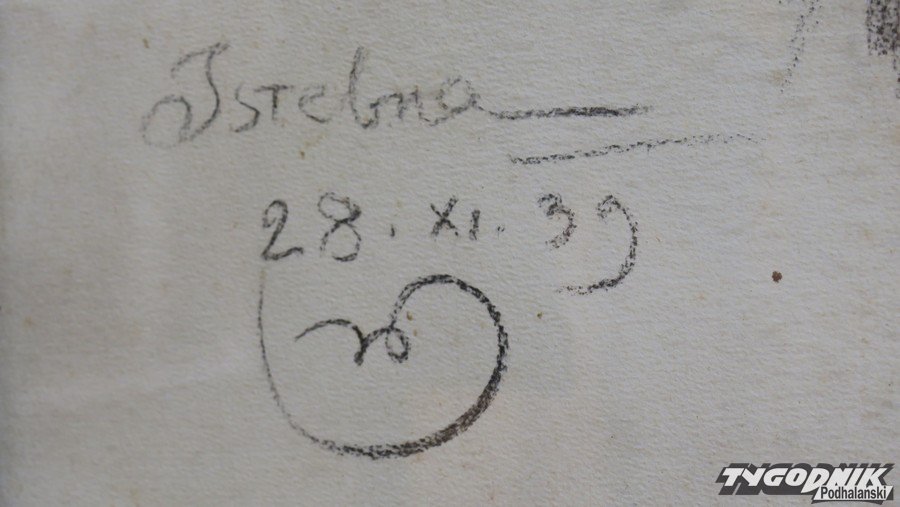 Istebna
28.XI.39
TYGODNIK
Podhalański